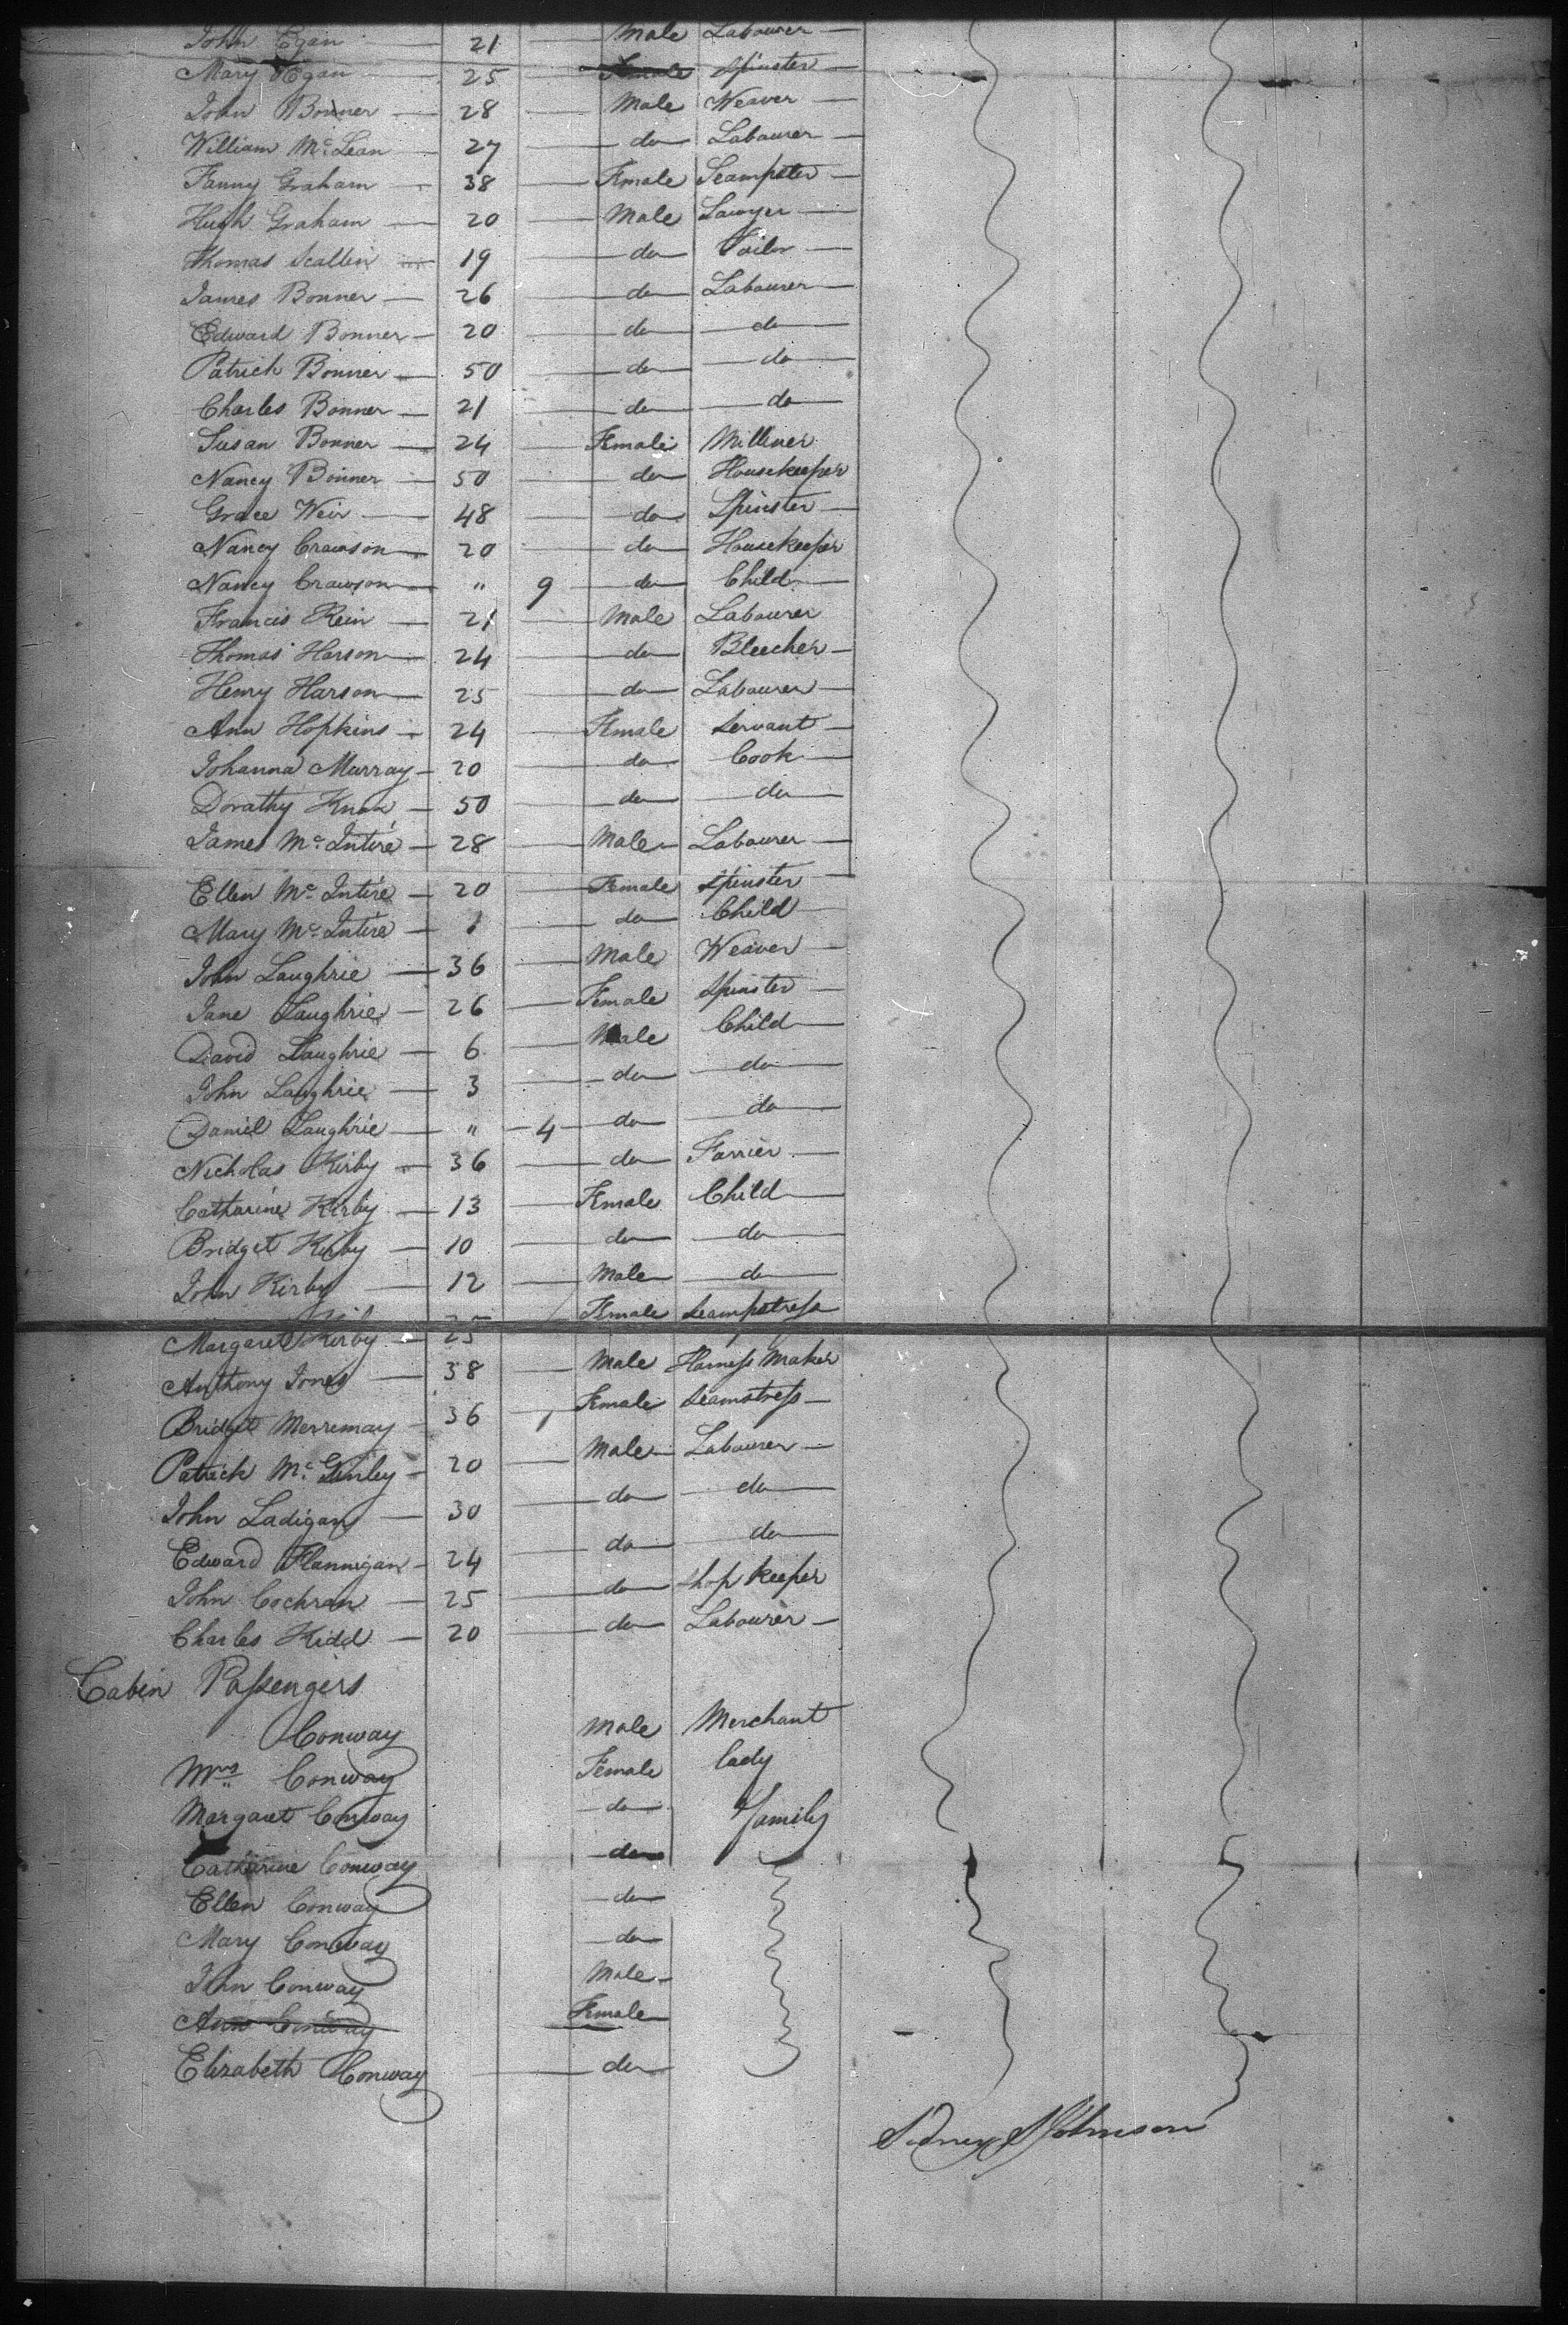 John Egan 21 Male Labourer
Mary Egan 25 Female Spinster
John Bonner 28 Male Weaver
William McLean 27 do Labourer
Fanny Graham 38 Female Seampster
Hugh Graham 20 Male Sawyer
Thomas Scallin 19 do
James Bonner 26 do Labourer
Edward Bonner 20 do do
Patrick Bonner 50 do do
Charles Bonner 21 do do
Susan Bonner 24 Female Milliner
Nancy Bonner 50 do Housekeeper
Grace Weir 48 do Spinster
Nancy Crawson 20 do Housekeeper
Nancy Crawson " 9 do Child
Francis Rein 21 Male Labourer
Thomas Harson 24 do Bleecher
Henry Harson 25 do Labourer
Ann Hopkins 24 Female Servant
Johanna Murray 20 do Cook
Dorathy Knox 50 do do
James Mc Intire 28 Male Labourer
Ellen Mc Intire 20 Female Spinster
Mary Mc Intire 1 do Child
John Laughrie 36 Male Weaver
Jane Laughrie 26 Female Spinster
David Laughrie 6 Male Child
John Laughrie 3 do do
Daniel Laughrie " 4 do do
Nicholas Kirby 36 do Farrier
Catharine Kirby 13 Female Child
Bridget Kirby 10 do do
John Kirby 12 Male do
Margaret Kirby 25 Female Seampstress
Anthony Jones 38 Male Harness Maker
Bridget Merremay 36 Female Seamstress
Patrick Mc Ginley 20 Male Labourer
John Ladigan 30 do do
Edward Flannigan 24 do do
John Cochran 25 do Shop Keeper
Charles Kidd 20 do Labourer
Cabin Passengers
Conway Male Merchant
Mrs Conway Female lady
Margaret Conway do family
Catharine Conway do
Ellen Conway do
Mary Conway do
John Conway Male
Ann Conway Female
Elizabeth Conway do
Sidney S Johnson